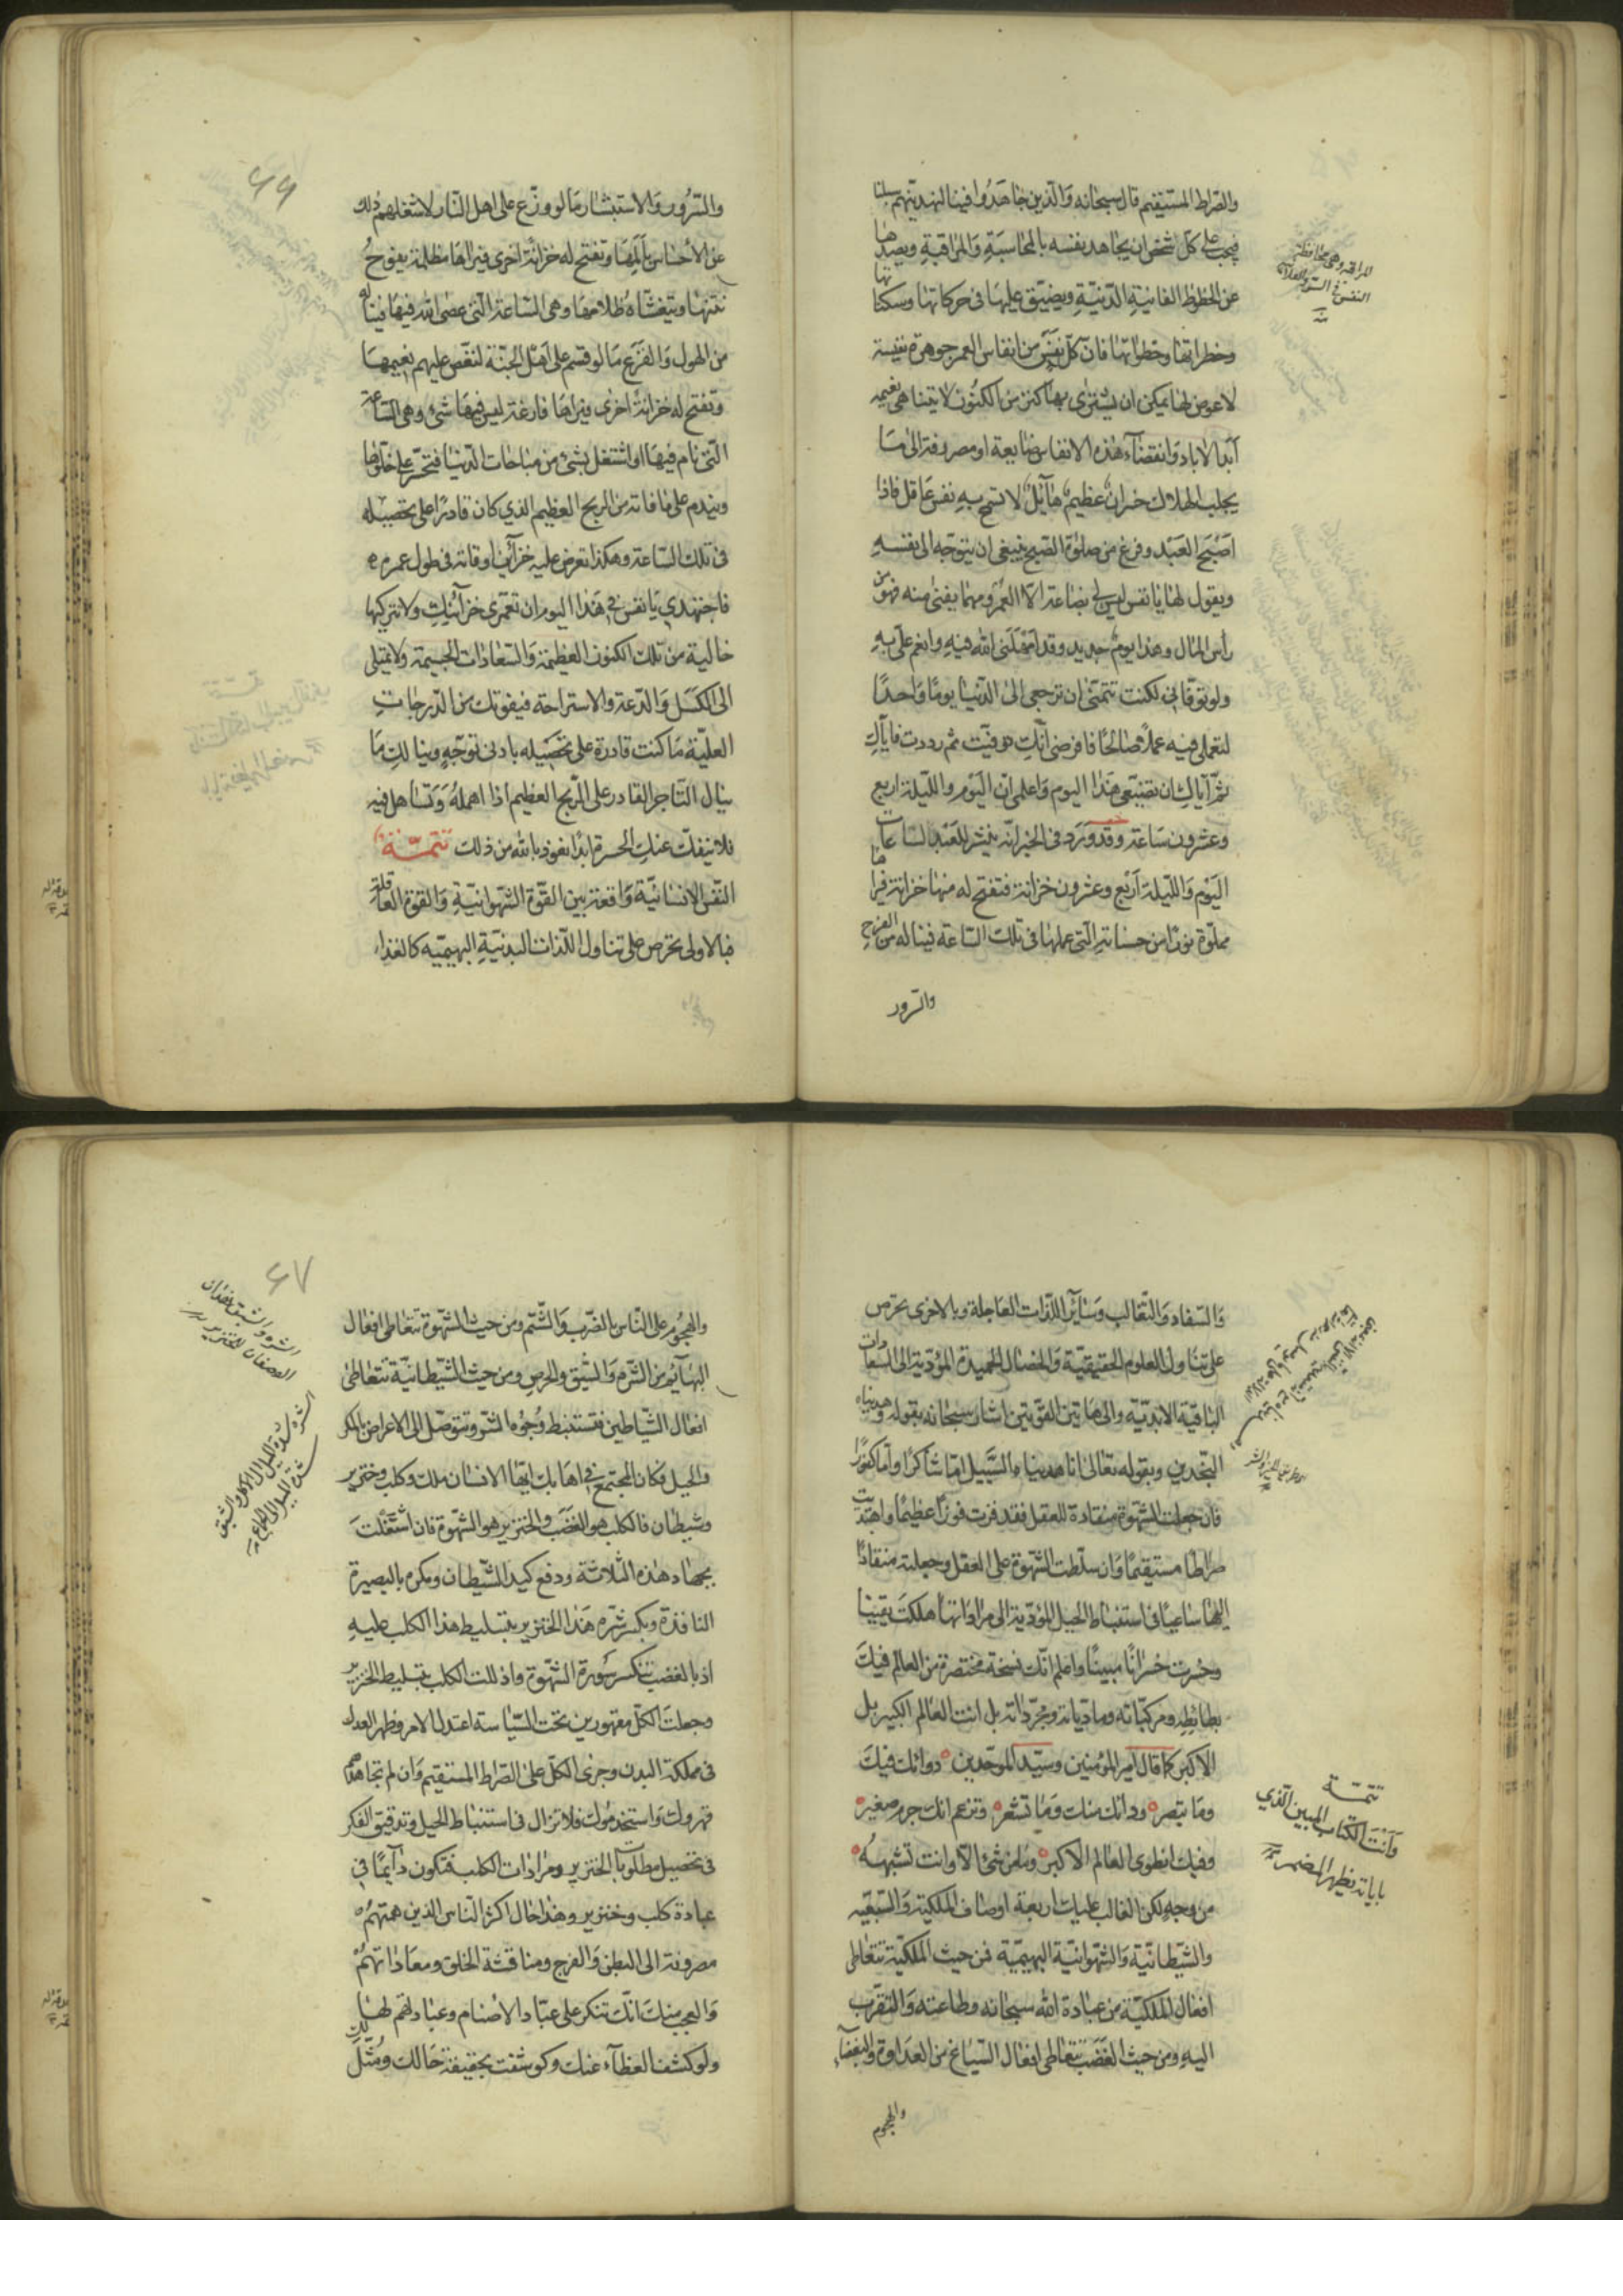 والصّراط المستقيم قال سبحانه وَالّذين جَاهَدُوا فينا لنهدينّهم سبلنا
فيجب على كلّ شخص ان يجاهد نفسه بالمحاسبَةِ وَالمراقبةِ ويصدها
عن الحظوظ الفانيةِ الدّنيّةِ ويضيّق عليهَا فى حركاتهَا وسكناتها
وخطراتهَا وخطواتهَا فانّ كلّ نفَسٍ من انفاس العمر جوهرة نفيسة
لا عوض لهَا يمكن ان يشترى بهَا كنز من الكنُوز لا يتناهى نعيمه
اَبَد الاباد وَانقضآء هٰذه الانفاس ضايعة او مصروفة الىٰ مَا
يجلب الهلاك خسران عظيم هآئل لا تسمح بهِ نفس عَاقل فاذا
اصْبَح العَبْد وفرغ من صلوٰة الصّبح ينبغى ان يتوجّه الى نفسهِ
ويقول لهَا يا نفس ليس لى بضاعة الاّ العُمر ومهما يفنىٰ منه فهو من
رأس المٰال وهذا يوم جديد وقد اَمْهَلَنى اللّٰه فيهِ وانعم علَىّ بهِ
ولو توفّانى لكنت تتمنّى ان ترجعى الىٰ الدّنيَا يومًا وَاحدًا
لتعملى فيه عملاً صَالحًا فافرضى انّكِ توفّيت ثم رددت فايّاكِ
ثمّ ايّاكِ ان تضيّعى هَذا اليوم وَاعلمى انّ اليَوم والليلة اربع
وعشرون سَاعة وقد وَرَد فى الخبر انّه ينشر للعَبْد لساعات
اليَوْم وَالليلة اَرْبع وعشرون خزانة فتفتح له منهَا خزانة فيراها
مملوّة نورًا من حسناتهِ الّتى عملهَا فى تلك السّاعة فيناله من الفرحِ
والسّرور
المراقبة وهى محافظة
النفس فى السرّ والعلانية
٦٦
والسّرُور وَالاستبشار مَا لو وزّع على اهل النّار لاشغلهم ذلك
عن الأحساس بأَلَمِهَا وتفتح له خزانة اخرى فيراهَا مظلمة يفوح
نتنهَا ويتغشّاهُ ظلامهَا وهى السّاعة الّتى عصى اللّٰه فيهَا فيناله
من الهول وَالفَزَع مَا لو قسم على اَهْل الجنّة لنغّص عليهم نعيمهَا
وتفتح له خزانة اخرى فيراهَا فارغة ليس فيهَا شئ وهى السّاعة
الّتى نام فيهَا او اشتغل بشئ من مبَاحات الدّنيَا فيتحسّر على خلوّها
ويندم على مَا فاته من الربح العظيم الذي كان قادرًا على تحصيله
فى تلك السّاعة وهكذا تعرض عليهِ خزآئن اوقاته فى طول عمره
فاجتهدي يَا نفس فى هَذا اليوم ان تعمّرى خزآئنكِ ولا تتركيهَا
خالية من تلك الكنوز العظيمة وَالسّعادات الجسيمة ولا تميلى
الى الكَسَل وَالدّعة والاستراحة فيفوتك من الدّرجات
العليّة مَا كنت قادرة على تحصيله بادنى توجّهٍ وينالكِ مَا
ينال التّاجر القادر على الرّبح العظيم اذا اهملهُ وَتسَاهل فيهِ
فلا ينفكّ عنكِ الحسرة ابدًا نعوذ باللّٰه من ذلك تتمّــة
النّفس الانسَانيّة وَاقعة بين القوّة الشّهوانيّةِ وَالقوّة العاقلة
فبالاولى تحرص على تناول اللّذات البدنيّةِ البهيميّه كالغذاء
وَالسّفاد وَالتّغالب وَسَآئر اللّذات العَاجلة وبالاخرى تحرص
على تنَاول العلوم الحقيقيّة وَالخصَال الحميدة المؤدّية الى السّعادات
الباقية الابديّة والى هَاتين القوّتين اشار سبحانه بقوله وهديناه
النّجدين وبقوله تعالىٰ انّا هديناه السَّبيل امّا شَاكرًا وامّا كفُورًا
فان جعلت الشّهوة منقادة للعقل فقد فزت فوزًا عظيمًا واهتديت
صراطًا مستقيمًا وَان سلّطت الشّهوة على العقل وجعلته منقادًا
اليهَا ساعيًا فى استنباط الحيل المؤدّية الى مراداتهَا هلكت يقينًا
وخسرت خسرانًا مبينًا واعلم انّك نسخة مختصرة من العالم فيك
بسائطه ومركّباته ومادّياته ومجرّداته بل انت العَالم الكبير بل
الاكبر كما قال امير المؤمنين وسيّد الموحّدين دوائك فيك
وما تبصر ودائك منك وَمَا تشعر وتزعم انّك جرم صغير
وفيك انطوى العَالم الاكبر وما من شئ الاّ وانت تشبههُ
من وجهٍ لكن الغالب عليك اربعة اوصاف الملكيّة وَالسّبعيّه
والشّيطانيّة وَالشّهوانيّة البهيميّة فمن حيث الملكيّة تتعَاطى
افعَال الملكيّة من عبَادة اللّٰه سبحانه وطاعته وَالتّقرّب
اليهِ ومن حيث الغَضَب تتعَاطى افعال السّباع من العدَاوة وَالبغضآء
والهجوم
تتمّــة
وَأنْتَ الكتاب المبين الّذي
باياته يظهر المضمر
٦٧
الشره والشبق صفتان
الشره شدّة الميل الى الاكل والشبق
شدّة الميل الى الجماع
والهجُوم على النّاس بالضّرب وَالشّتم ومن حيث الشّهوة تتعَاطى افعَال
البهَآئم من الشّره وَالشّبق والحرص ومن حيث الشّيطانيّة تتعَاطىٰ
افعَال الشّيَاطين فتستنبط وُجُوه الشّر وتتوصّل الى الاعراض بالمكر
والحيل فكان المجتمع فى اهابك ايّها الانسَان ملك وكلب وخنزير
وشيطان فالكلب هو الغضَب والخنزير هو الشّهوة فان اشتغلت
بجهاد هٰذه الثّلاثة ودفع كيد الشّيطان ومكره بالبصيرة
النافذة وبكسر شره هَذا الخنزير بتسليط هذا الكلب عليهِ
اذ بالغضب تنكسر سَورة الشّهوة واذللت الكلب بتسليط الخنزير
وجعلت الكلّ مقهورين تحت السّيَاسة اعتدل الامر وظهر العدل
فى مملكة البدن وجرى الكلّ على الصّراط المستقيم وَان لم تجاهدهم
قهروك وَاستخدموك فلا تزال فى استنبَاط الحيل وتدقيق الفكر
فى تحصيل مطلوبات الخنزير ومرادَات الكلب فتكون دَآئمًا فى
عبادة كلب وخنزير وهٰذا حَال اكثر النّاس الذين همّتهمْ
مصروفة الى البطن وَالفرج ومناقشة الخلق ومعَاداتهمْ
وَالعجب منك انّك تنكر على عبّاد الاصْنام وعبَادتهم لهَا
ولو كشف الغطآء عنك وكوشفت بحقيقة حَالك ومُثّل لك